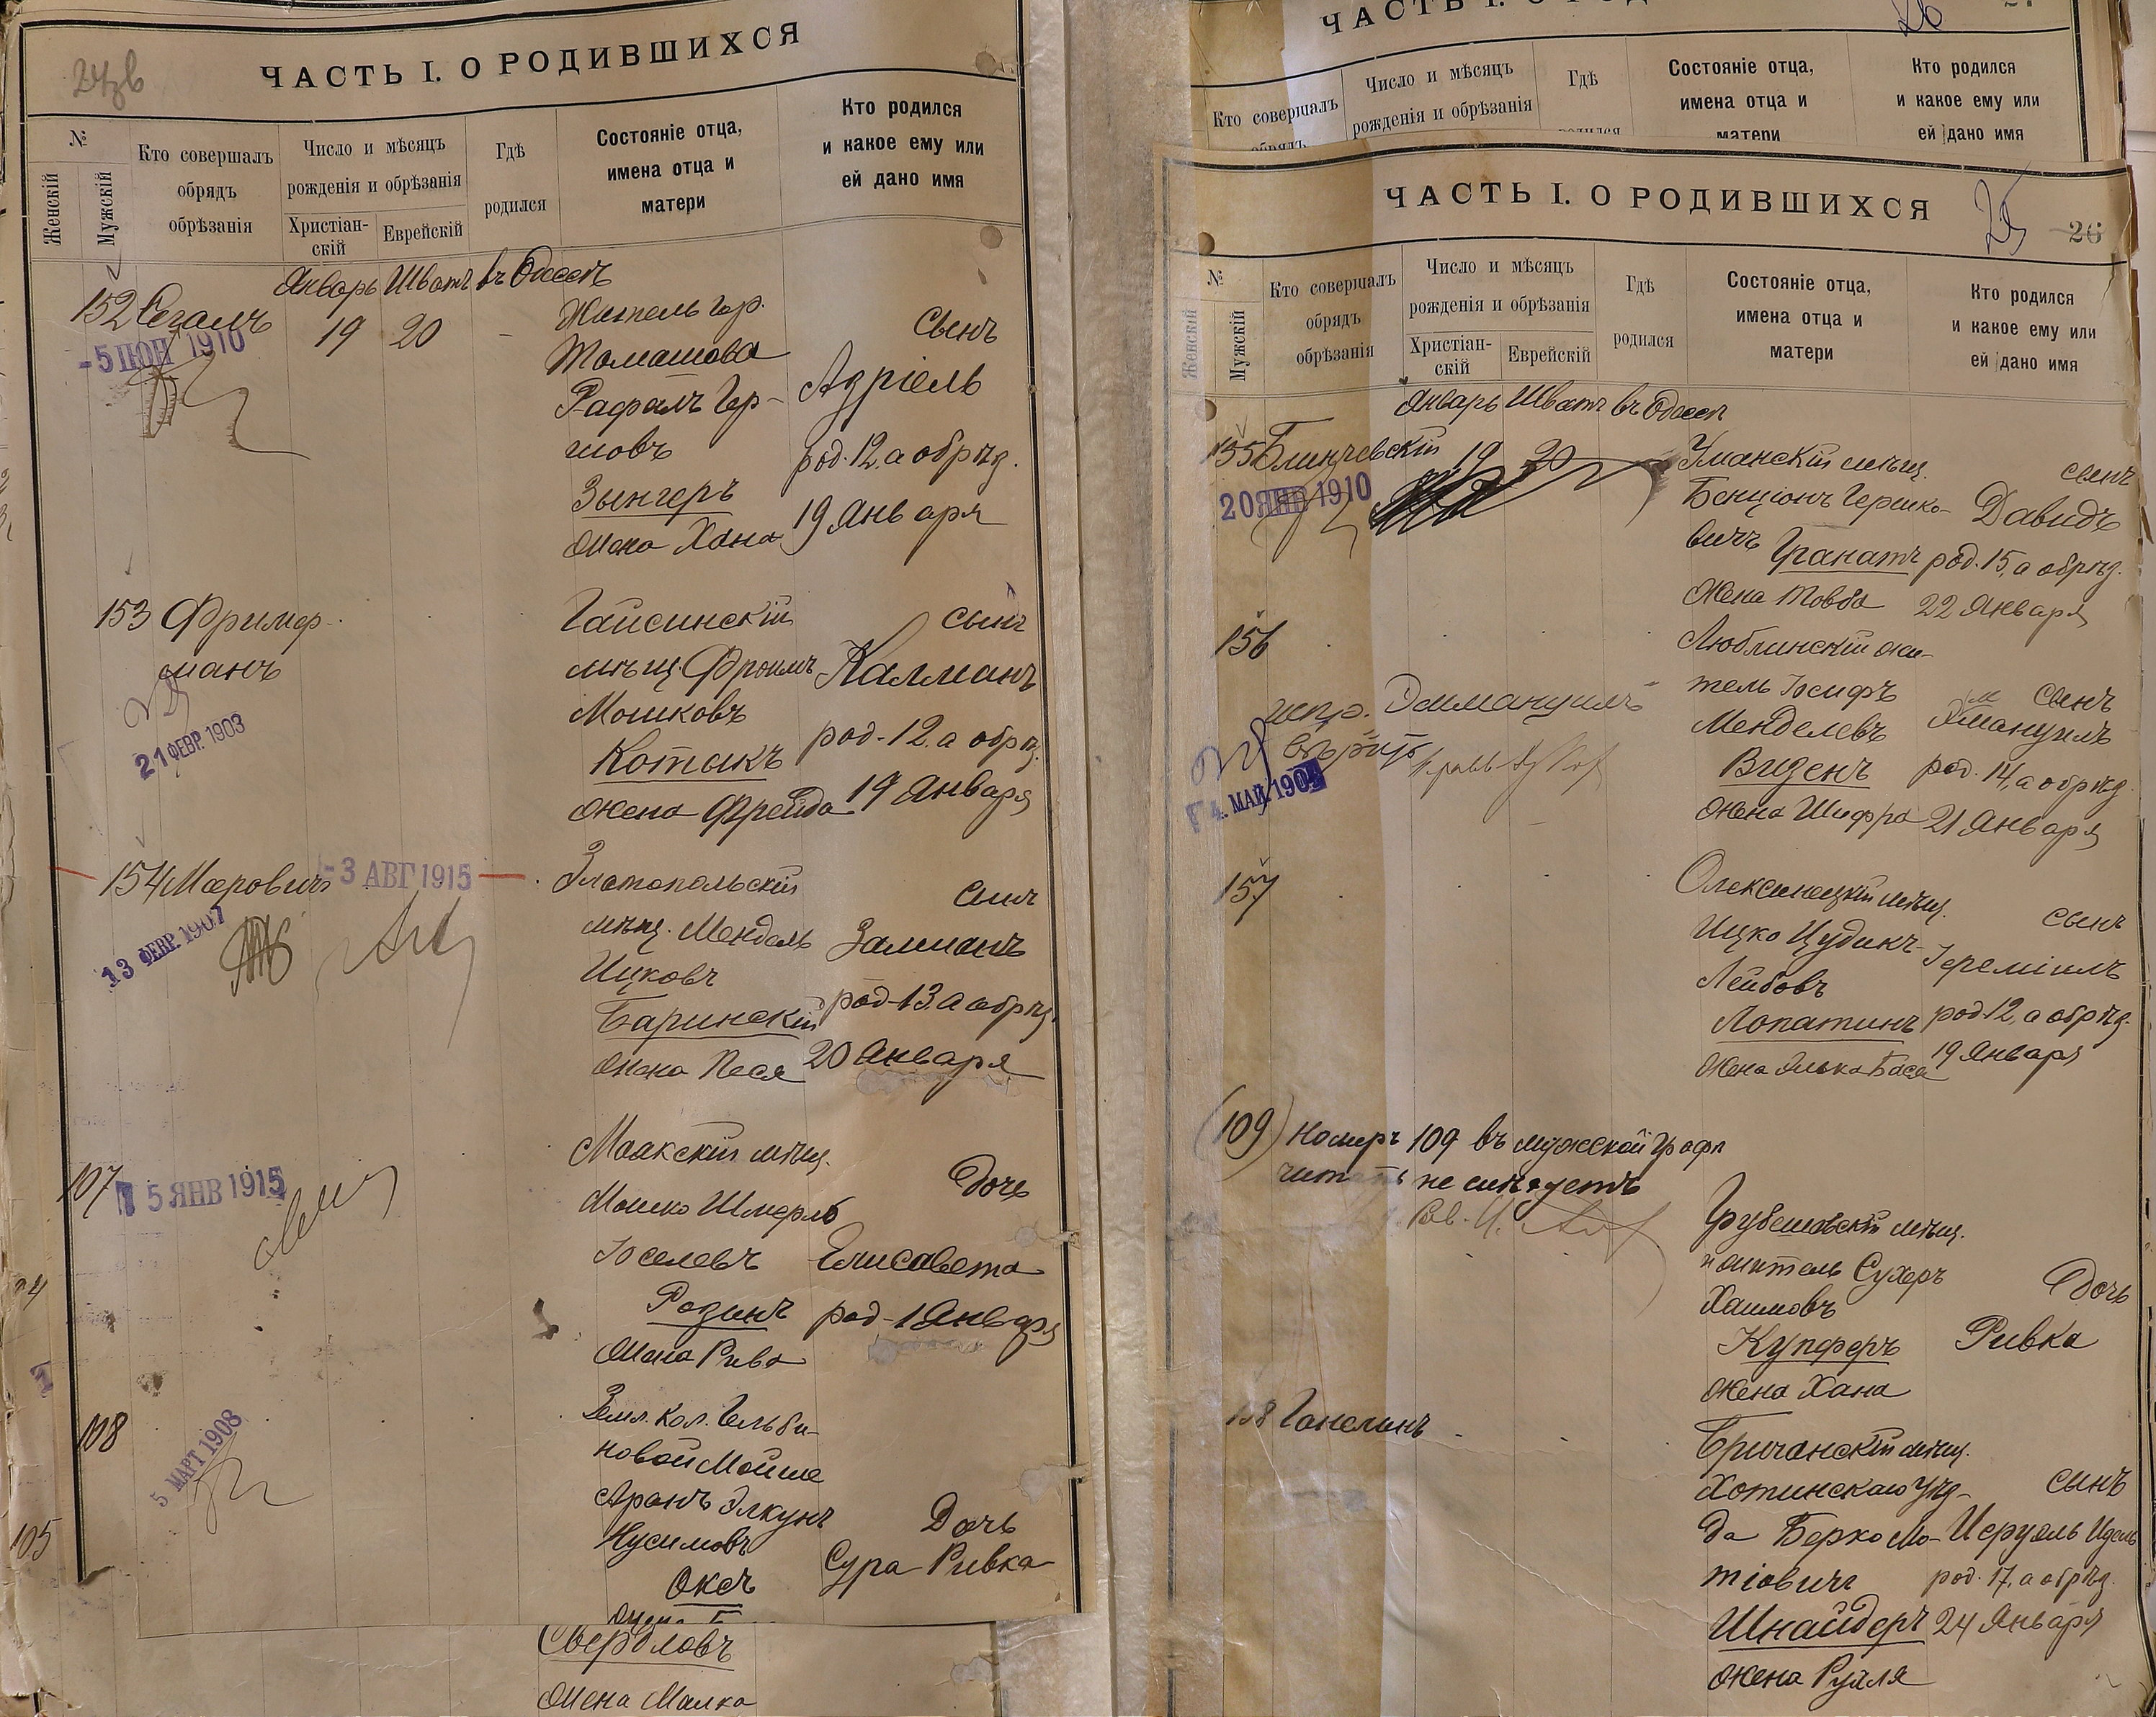 ЧАСТЬ I. О РОДИВШИХСЯ
№
Женскій
Мужскій
Кто совершалъ
обрядъ
обрѣзанія
Число и мѣсяцъ
рожденія и обрѣзанія
Христіан-
скій
Еврейскій
Гдѣ
родился
Состояніе отца,
имена отца и
матери
Кто родился
и какое ему или
ей дано имя
Январь Шватъ въ Одессѣ
152 Сегалъ 19 20
-5 ІЮН 1910
Житель гор.
Томашова
Рафалъ Гер-
шовъ
Зынгеръ
жена Хана
сынъ
Азріель
род. 12, а обрѣз.
19 Января
153 Фример-
манъ
21 ФЕВР. 1903
Гайсинскій
мѣщ. Фроимъ
Мошковъ
Котыкъ
жена Фрейда
сынъ
Калманъ
род. 12, а обрѣз.
19 Января
154 Меровичъ
-3 АВГ 1915
13 ФЕВР. 1907
Златопольскій
мѣщ. Мендель
Ицковъ
Баринскій
жена Песя
сынъ
Залманъ
род. 13, а обрѣз.
20 Января
107
15 ЯНВ 1915
Маакскій мѣщ.
Мошко Шмерль
Іоселевъ
Розинъ
жена Рива
дочь
Елисавета
род. 1 Января
108
5 МАРТ 1908
Земл. кол. Гельби-
новой Мойше
Аронъ Элкунъ
Нусимовъ
Оксъ
Дочь
Сура Ривка
Свердловъ
жена Малка
105
ЧАСТЬ I. О РОД
26
Кто совершалъ
Число и мѣсяцъ
рожденія и обрѣзанія
Гдѣ
Состояніе отца,
имена отца и
матери
Кто родился
и какое ему или
ей дано имя
ЧАСТЬ I. О РОДИВШИХСЯ
25 26
№
Женскій
Мужскій
Кто совершалъ
обрядъ
обрѣзанія
Число и мѣсяцъ
рожденія и обрѣзанія
Христіан-
скій
Еврейскій
Гдѣ
родился
Состояніе отца,
имена отца и
матери
Кто родился
и какое ему или
ей дано имя
Январь Шватъ въ Одессѣ
155 Блинчевскій 19 20
20 ЯНВ 1910
Уманскій мѣщ.
Бенціонъ Гершко-
вичъ Гранатъ
жена Товба
сынъ
Давидъ
род. 15, а обрѣз.
22 Января
156
испр. Эммануилъ
вѣрить
4. МАЙ. 190
Люблинскій жи-
тель Іосифъ
Менделевъ
Виденъ
жена Шифра
сынъ
Эмануилъ
род. 14, а обрѣз.
21 Января
157
Олексинецкій мѣщ.
Ицко Цудикъ
Лейбовъ
Лопатинъ
жена Элька Бася
сынъ
Іереміилъ
род. 12, а обрѣз.
19 Января
(109) номеръ 109 въ мужской графѣ
читать не слѣдуетъ
Грубешовскій мѣщ.
и житель Сухеръ
Хаимовъ
Купферъ
жена Хана
Дочь
Ривка
158 Ганелинъ
Бричанскій мѣщ.
Хотинскаго Уѣз-
да Берко Мо-
тіовичъ
Шнайдеръ
жена Рухля
сынъ
Исруэль Идель
род. 17, а обрѣз.
24 Января